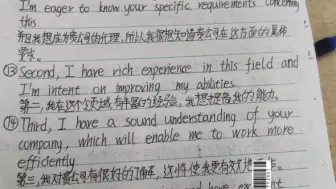 I'm eager to know your specific requirements concerning
this.
并且我想成为贵公司的代理,所以我很想知道贵公司在这方面的具体
要求。
⑬ Second, I have rich experience in this field and
I'm intent on improving my abilities.
第二,我在这个领域有丰富的经验,我想提高我的能力。
⑭ Third, I have a sound understanding of your
company, which will enable me to work more
efficiently.
第三,我对贵公司有很好的了解,这将使我更有效地
and have